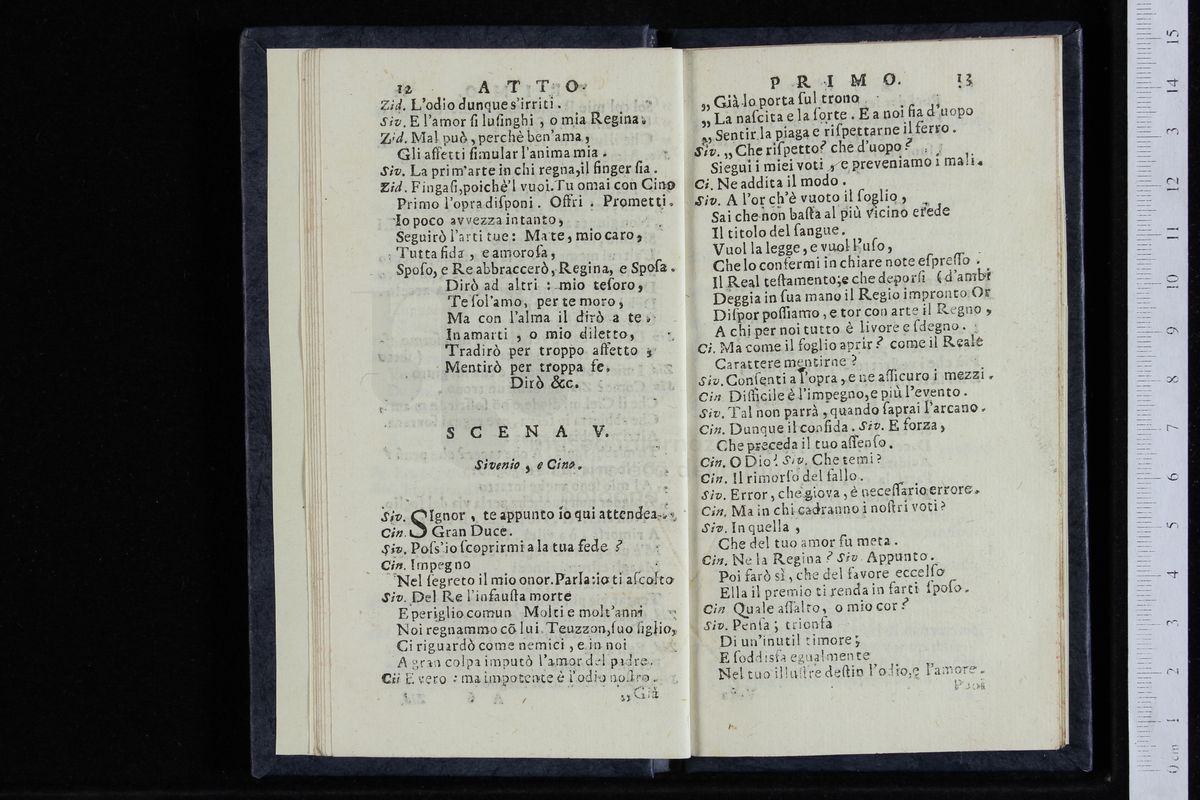 12 ATTO.
Zid. L'odio dunque s'irriti.
Siv. E l'amor ſi luſinghi, o mia Regina.
Zid. Mal può, perchè ben'ama,
Gli affetti ſimular l'anima mia.
Siv. La prim'arte in chi regna, il finger ſia.
Zid. Fingaſi, poichè'l vuoi. Tu omai con Cino
Primo l'opra diſponi. Offri. Prometti.
Io poco avvezza intanto,
Seguirò l'arti tue: Ma te, mio caro,
Tutta fida, e amoroſa,
Spoſo, e Re abbraccerò, Regina, e Spoſa.
Dirò ad altri: mio teſoro,
Te ſol'amo, per te moro,
Ma con l'alma il dirò a te.
In amarti, o mio diletto,
Tradirò per troppo affetto;
Mentirò per troppa fe.
Dirò &c.
SCENA V.
Sivenio, e Cino.
Siv. SIgnor, te appunto io qui attendea.
Cin. Gran Duce.
Siv. Poſs'io ſcoprirmi a la tua fede?
Cin. Impegno
Nel ſegreto il mio onor. Parla: io ti aſcolto
Siv. Del Re l'infauſta morte
E periglio comun Molti e molt'anni
Noi regnammo cõ lui. Teuzzon, ſuo figlio,
Ci riguardò come nemici, e in noi
A gran colpa imputò l'amor del padre.
Cii E vero: ma impotente è l'odio noſtro.
„Già
PRIMO. 13
„ Già lo porta ſul trono
„ La naſcita e la ſorte. E a noi fia d'uopo
„ Sentir la piaga e riſpettarne il ferro.
Siv. „ Che riſpetto? che d'uopo?
Siegui i miei voti, e preveniamo i mali.
Ci. Ne addita il modo.
Siv. A l'or ch'è vuoto il ſoglio,
Sai che non baſta al più vicino erede
Il titolo del ſangue.
Vuol la legge, e vuol l'uſo,
Che lo confermi in chiare note eſpreſſo
Il Real teſtamento; e che deporſi (d'ambi
Deggia in ſua mano il Regio impronto Or
Diſpor poſſiamo, e tor con arte il Regno,
A chi per noi tutto è livore e ſdegno.
Ci. Ma come il foglio aprir? come il Reale
Carattere mentirne?
Siv. Conſenti a l'opra, e ne aſſicuro i mezzi.
Cin Difficile è l'impegno, e più l'evento.
Siv. Tal non parrà, quando ſaprai l'arcano.
Cin. Dunque il confida. Siv. E forza,
Che preceda il tuo aſſenſo.
Cin. O Dio! Siv. Che temi?
Cin. Il rimorſo del fallo.
Siv. Error, che giova, è neceſſario errore.
Cin. Ma in chi cadranno i noſtri voti?
Siv. In quella,
Che del tuo amor fu meta.
Cin. Ne la Regina? Siv. Appunto.
Poi farò sì, che del favore eccelſo
Ella il premio ti renda in farti ſpoſo.
Cin Quale aſſalto, o mio cor?
Siv. Penſa; trionfa
Di un'inutil timore;
E ſoddisfa egualmente
Nel tuo illuſtre deſtin l'odio, e l'amore.
0 cm 1 2 3 4 5 6 7 8 9 10 11 12 13 14 15